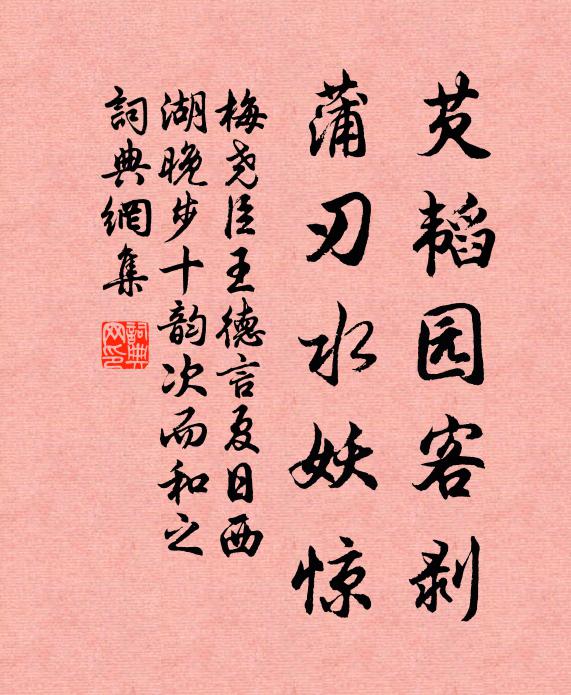 芡韬园客剥
蒲刃水妖惊
梅尧臣王德言夏日西
湖晚步十韵次而和之
詞典網集
詞典网印